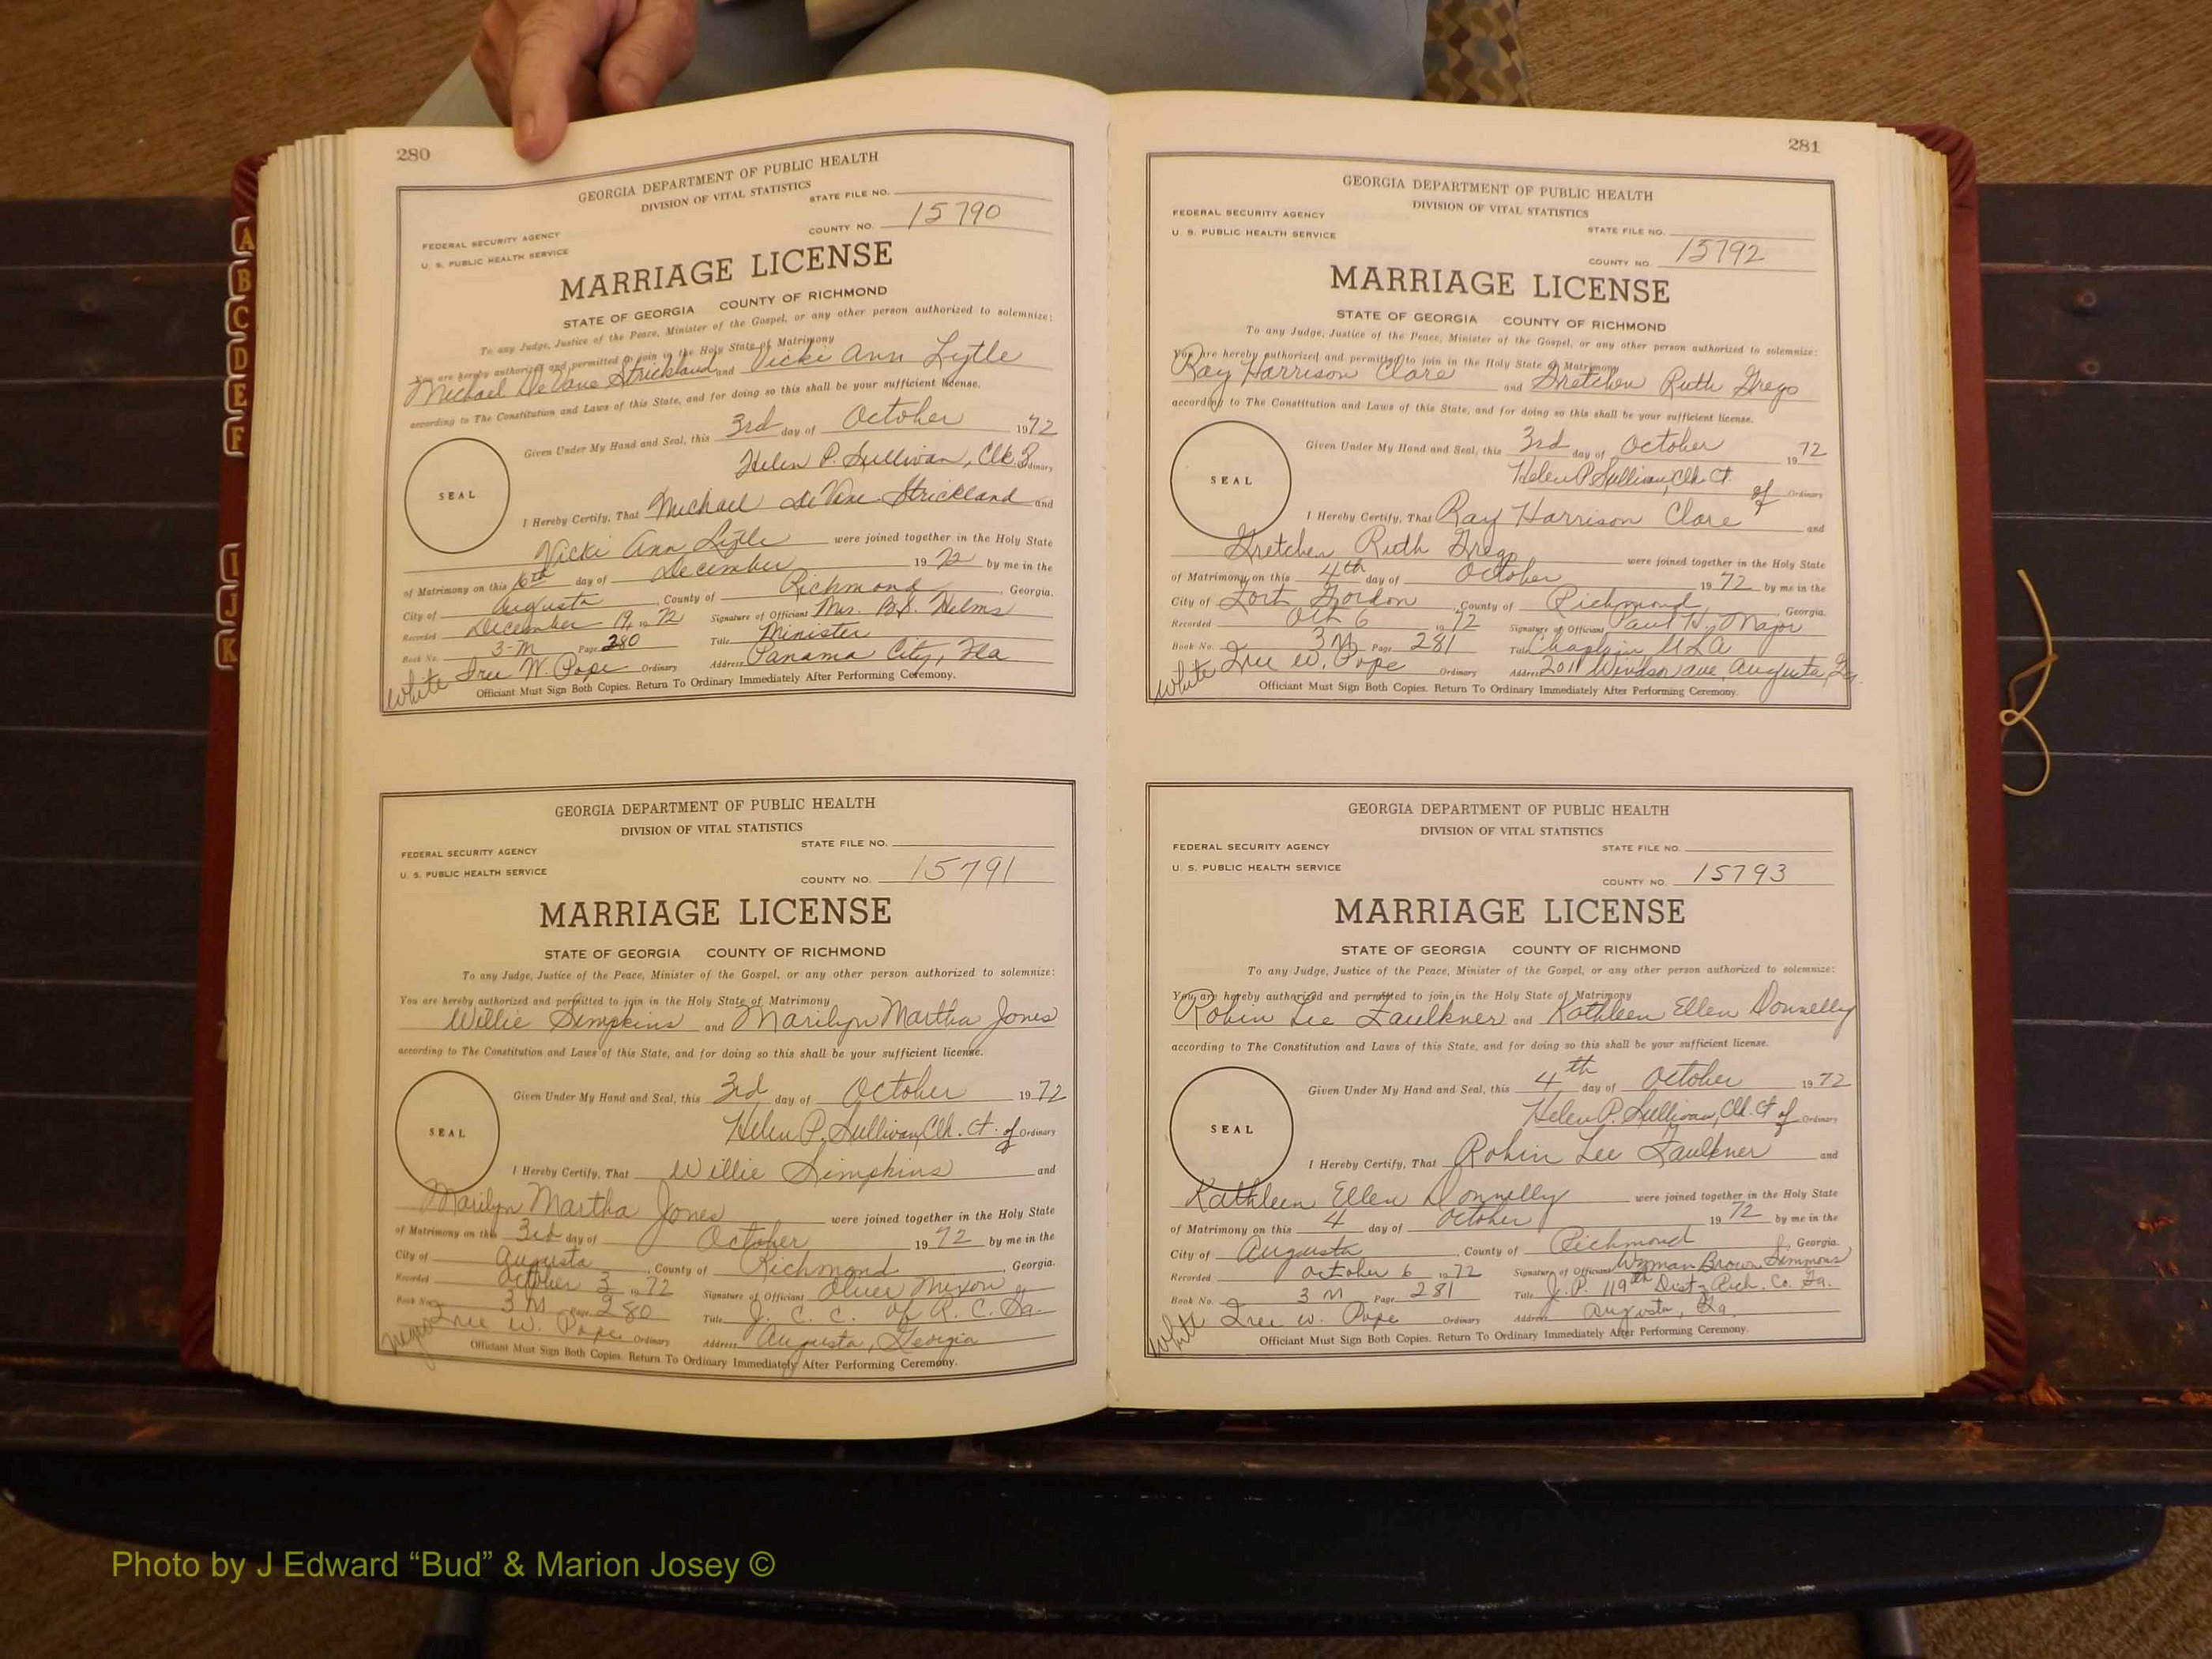 280
GEORGIA DEPARTMENT OF PUBLIC HEALTH
DIVISION OF VITAL STATISTICS
STATE FILE NO.
FEDERAL SECURITY AGENCY
COUNTY NO. 15790
U. S. PUBLIC HEALTH SERVICE
MARRIAGE LICENSE
STATE OF GEORGIA COUNTY OF RICHMOND
To any Judge, Justice of the Peace, Minister of the Gospel, or any other person authorized to solemnize:
You are hereby authorized and permitted to join in the Holy State of Matrimony
Michael DeVane Strickland and Vicki Ann Lytle
according to The Constitution and Laws of this State, and for doing so this shall be your sufficient license.
Given Under My Hand and Seal, this 3rd day of October 1972
Helen P. Sullivan, Clk. Ordinary
SEAL
I Hereby Certify, That Michael DeVane Strickland and
Vicki Ann Lytle were joined together in the Holy State
of Matrimony on this 16th day of December 1972 by me in the
City of Augusta, County of Richmond, Georgia.
Recorded December 19, 1972 Signature of Officiant Mrs. B. S. Helms
Book No. 3-M Page 280 Title Minister
White Iree W. Pope Ordinary Address Panama City, Fla
Officiant Must Sign Both Copies. Return To Ordinary Immediately After Performing Ceremony.
GEORGIA DEPARTMENT OF PUBLIC HEALTH
DIVISION OF VITAL STATISTICS
STATE FILE NO.
FEDERAL SECURITY AGENCY
U. S. PUBLIC HEALTH SERVICE
COUNTY NO. 15791
MARRIAGE LICENSE
STATE OF GEORGIA COUNTY OF RICHMOND
To any Judge, Justice of the Peace, Minister of the Gospel, or any other person authorized to solemnize:
You are hereby authorized and permitted to join in the Holy State of Matrimony
Willie Simpkins and Marilyn Martha Jones
according to The Constitution and Laws of this State, and for doing so this shall be your sufficient license.
Given Under My Hand and Seal, this 3rd day of October 1972
Helen P. Sullivan, Clk. Ct. of Ordinary
SEAL
I Hereby Certify, That Willie Simpkins and
Marilyn Martha Jones were joined together in the Holy State
of Matrimony on this 3rd day of October 1972 by me in the
City of Augusta, County of Richmond, Georgia.
Recorded October 3 1972 Signature of Officiant Oliver Mixon
Book No. 3 M Page 280 Title J. C. C. of R. C. Ga.
Negro Iree W. Pope Ordinary Address Augusta, Georgia
Officiant Must Sign Both Copies. Return To Ordinary Immediately After Performing Ceremony.
281
GEORGIA DEPARTMENT OF PUBLIC HEALTH
DIVISION OF VITAL STATISTICS
FEDERAL SECURITY AGENCY
STATE FILE NO.
U. S. PUBLIC HEALTH SERVICE
COUNTY NO. 15792
MARRIAGE LICENSE
STATE OF GEORGIA COUNTY OF RICHMOND
To any Judge, Justice of the Peace, Minister of the Gospel, or any other person authorized to solemnize:
You are hereby authorized and permitted to join in the Holy State of Matrimony
Ray Harrison Clare and Gretchen Ruth Grego
according to The Constitution and Laws of this State, and for doing so this shall be your sufficient license.
Given Under My Hand and Seal, this 3rd day of October 1972
Helen P. Sullivan, Clk. Ct. of Ordinary
SEAL
I Hereby Certify, That Ray Harrison Clare and
Gretchen Ruth Grego were joined together in the Holy State
of Matrimony on this 4th day of October 1972 by me in the
City of Fort Gordon, County of Richmond, Georgia.
Recorded Oct 6 1972 Signature of Officiant Paul H. Major
Book No. 3 M Page 281 Title Chaplain USA
White Iree W. Pope Ordinary Address 2011 Windsor ave, Augusta, Ga.
Officiant Must Sign Both Copies. Return To Ordinary Immediately After Performing Ceremony.
GEORGIA DEPARTMENT OF PUBLIC HEALTH
DIVISION OF VITAL STATISTICS
FEDERAL SECURITY AGENCY
STATE FILE NO.
U. S. PUBLIC HEALTH SERVICE
COUNTY NO. 15793
MARRIAGE LICENSE
STATE OF GEORGIA COUNTY OF RICHMOND
To any Judge, Justice of the Peace, Minister of the Gospel, or any other person authorized to solemnize:
You are hereby authorized and permitted to join in the Holy State of Matrimony
Robin Lee Faulkner and Kathleen Ellen Donnelly
according to The Constitution and Laws of this State, and for doing so this shall be your sufficient license.
Given Under My Hand and Seal, this 4th day of October 1972
Helen P. Sullivan, Clk. Ct of Ordinary
SEAL
I Hereby Certify, That Robin Lee Faulkner and
Kathleen Ellen Donnelly were joined together in the Holy State
of Matrimony on this 4 day of October 1972 by me in the
City of Augusta, County of Richmond, Georgia.
Recorded October 6 1972 Signature of Officiant Wyman Brown Simmons
Book No. 3 M Page 281 Title J. P. 119th Dist Rich. Co. Ga.
White Iree W. Pope Ordinary Address Augusta, Ga.
Officiant Must Sign Both Copies. Return To Ordinary Immediately After Performing Ceremony.
A
B
C
D
E
F
I
J
K
Photo by J Edward “Bud” & Marion Josey ©